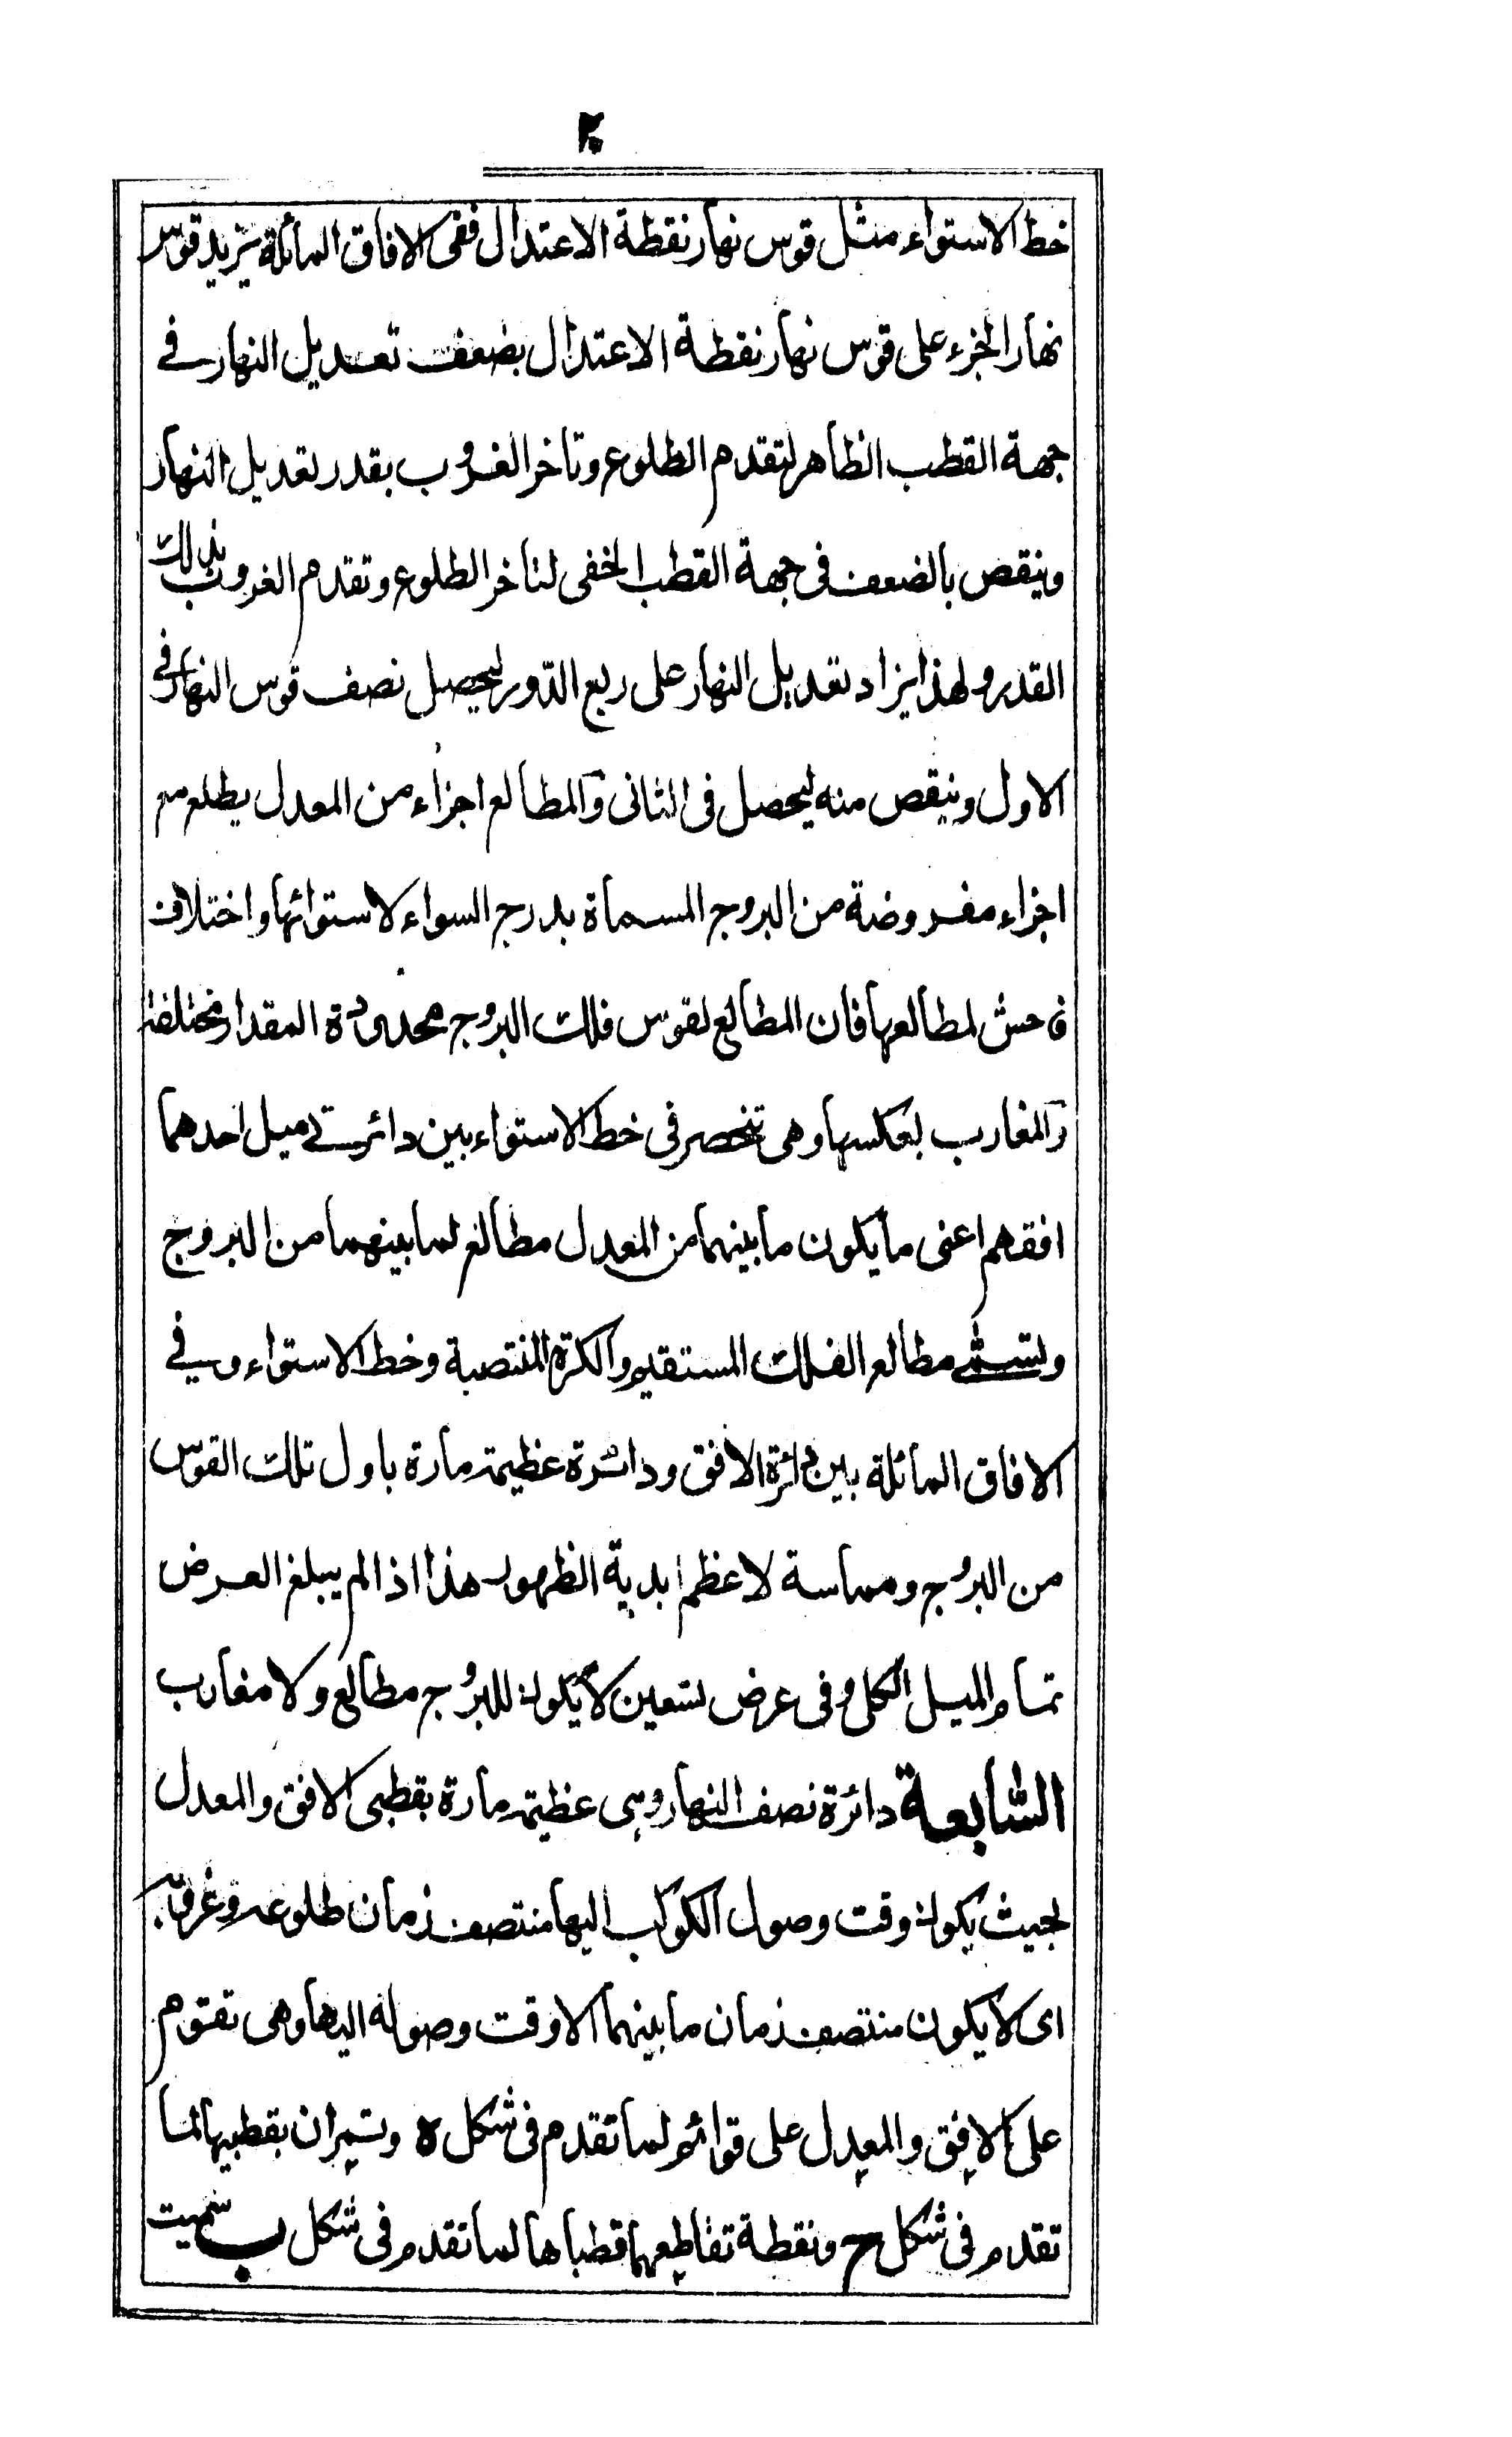 خط الاستواء مثل قوس نهار نقطة الاعتدال ففى الافاق المائلة يزيد قوس
نهار الجزء على قوس نهار نقطة الاعتدال بضعف تعديل النهار فے
جهة القطب الظاهر لتقدم الطلوع وتاخر الغروب بقدر تعديل النهار
وينقص بالضعف فى جهة القطب الخفى لتاخر الطلوع وتقدم الغروب بذلك
القدر ولهذا يزاد تعديل النهار على ربع الدّور ليحصل نصف قوس النهار فى
الاول وينقص منه ليحصل فى الثانى والمطالع اجزاء من المعدل يطلع مع
اجزاء مفروضة من البروج المسماة بدرج السواء لاستوائها واختلاف
فاحش لمطالعها فان المطالع لقوس فلك البروج محدودة المقدار مختلفة
والمغارب بعكسها وهى تنحصر فى خط الاستواء بين دائرتے ميل احدهما
افقهم اعنى ما يكون ما بينهما من المعدل مطالع لما بينهما من البروج
وتسمے مطالع الفلك المستقيم والكرة المنتصبة وخط الاستواء وفے
الافاق المائلة بين دائرة الافق ودائرة عظيمة مارة باول تلك القوس
من البروج ومماسة لاعظم ابدية الظهور هذا اذا لم يبلغ العرض
تمام الميل الكلى وفى عرض تسعين لا يكون للبروج مطالع ولا مغارب
السّابعة دائرة نصف النهار وهى عظيمة مارة بقطبى الافق والمعدل
بحيث يكون وقت وصول الكوكب اليها منتصف زمان طلوعه وغروبه
اى لا يكون منتصف زمان ما بينهما الا وقت وصوله اليها وهى تقوم
على الافق والمعدل على قوائم لما تقدم فى شكل ه وتمران بقطبيها لما
تقدم فى شكل ح ونقطة تقاطعهما قطباها لما تقدم فى شكل ب سميت